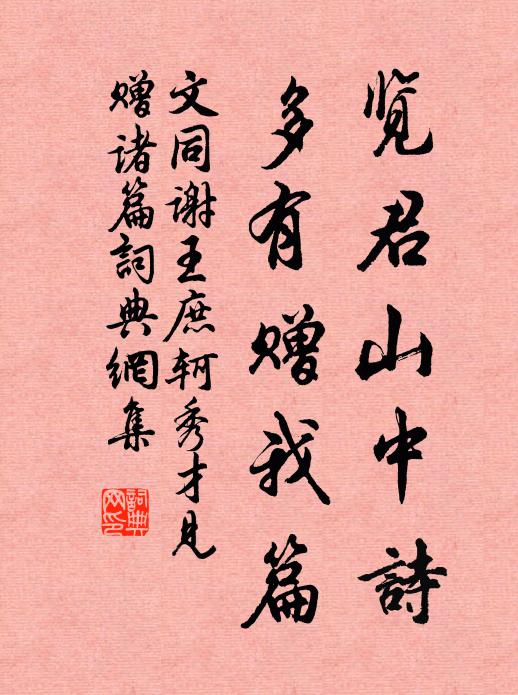 览君山中詩
多有赠我篇
文同谢王庶轲秀才見
赠诸篇詞典網集
詞典网印